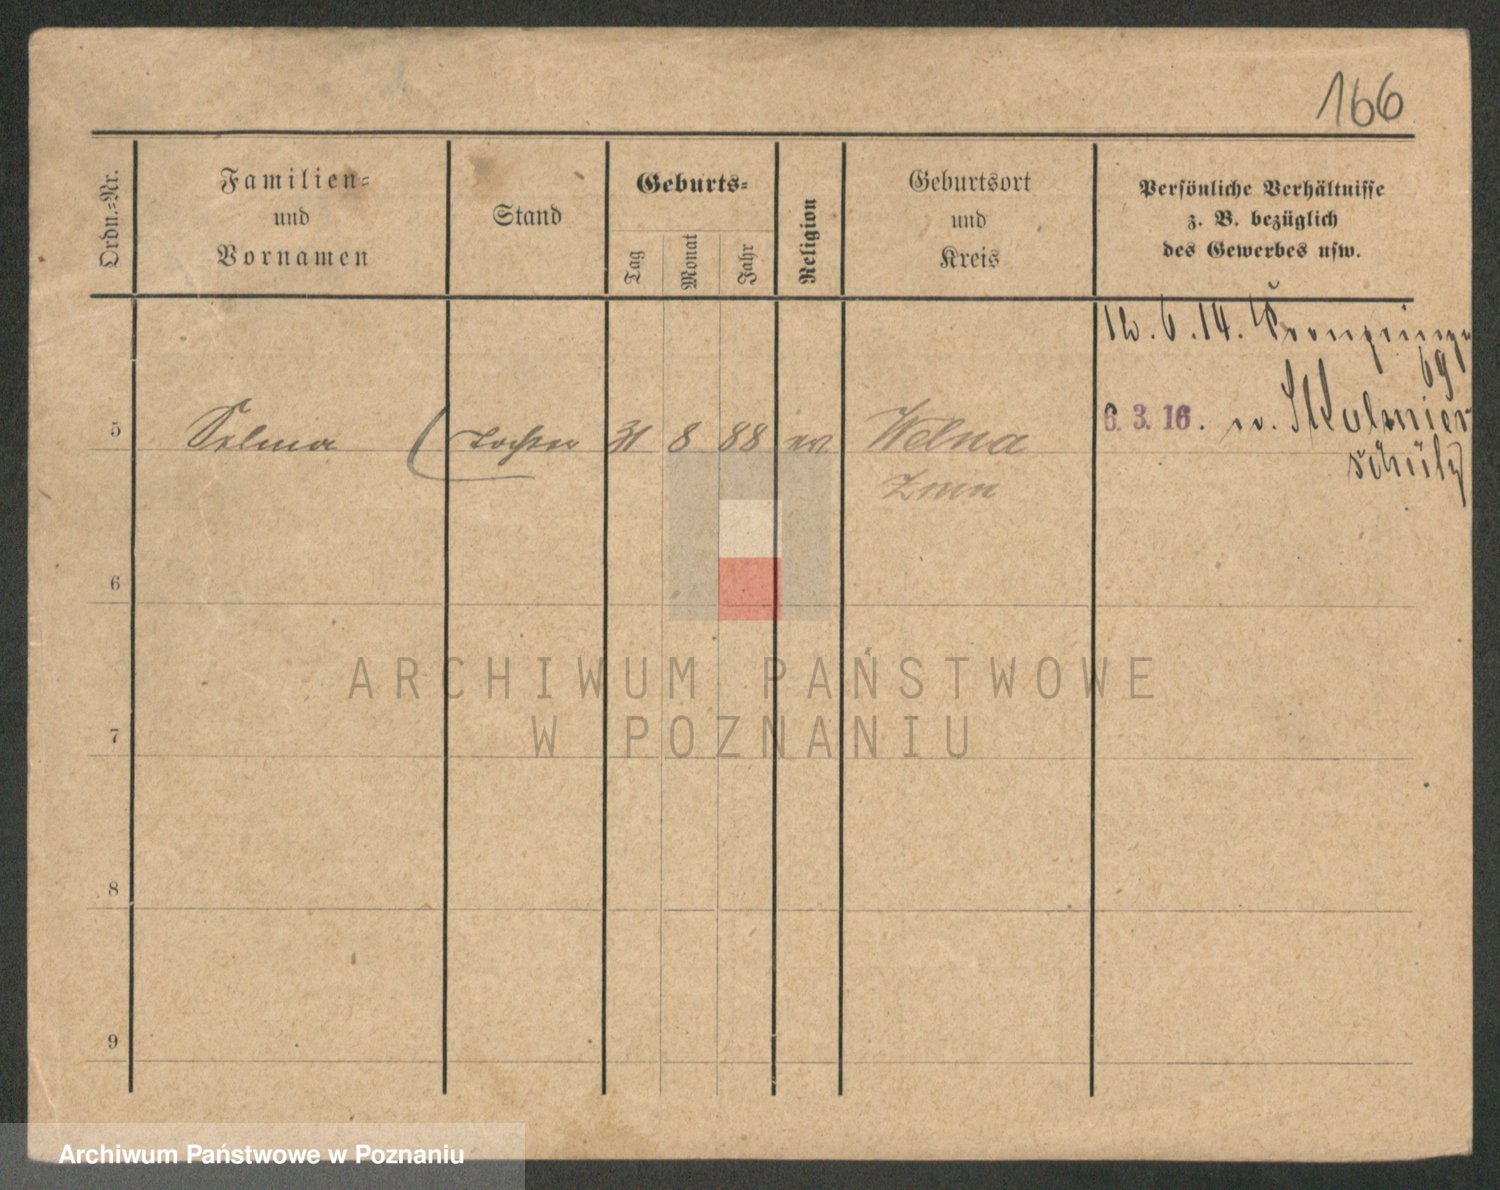 166
Ordn.-Nr.
Familien-
und
Vornamen
Stand
Geburts-
Tag
Monat
Jahr
Religion
Geburtsort
und
Kreis
Persönliche Verhältnisse
z. B. bezüglich
des Gewerbes usw.
6.14. Kronprinz
69
5 Selma Tochter 31 8 88 ev. Welna
6. 3. 16. n.
schütz
Znin
6
ARCHIWUM PAŃSTWOWE
W POZNANIU
7
8
9
Archiwum Państwowe w Poznaniu